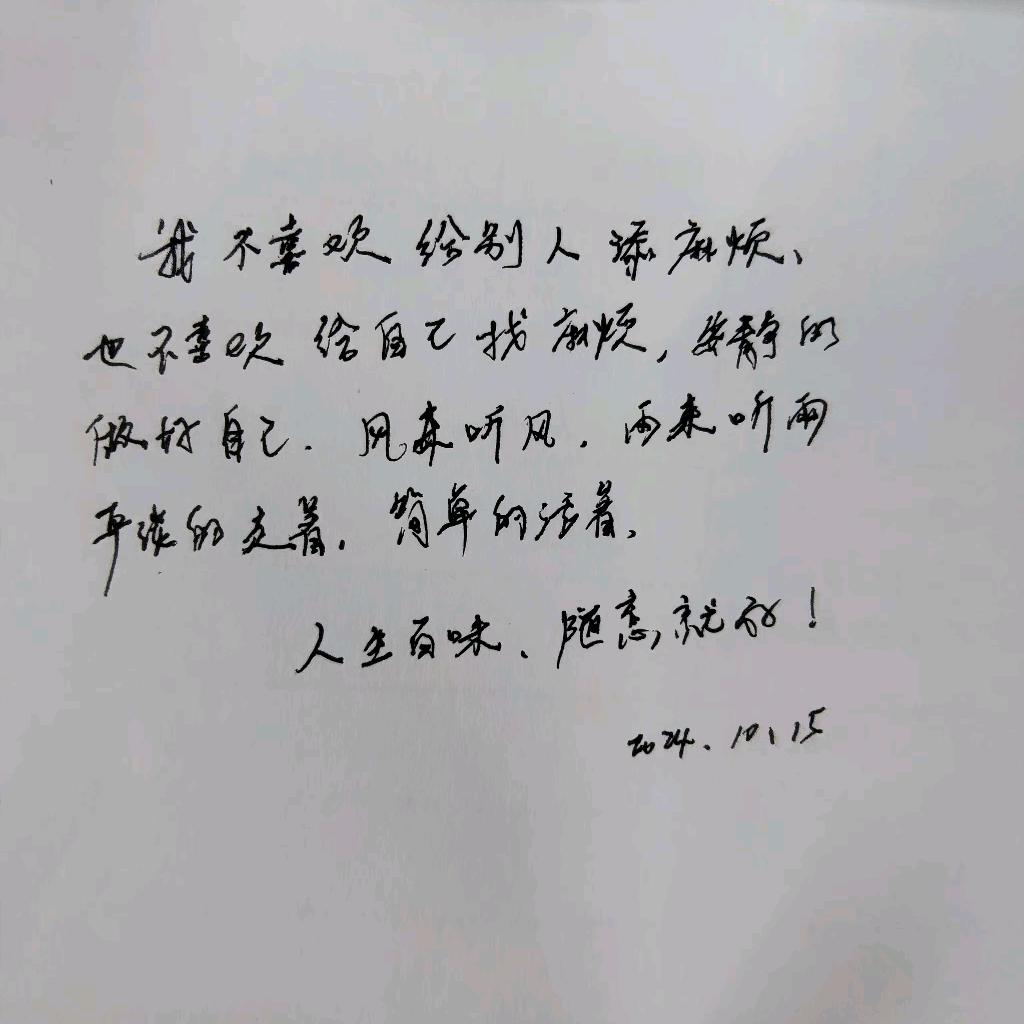 我不喜欢给别人添麻烦、
也不喜欢给自己找麻烦,安静的
做好自己.风来听风.雨来听雨
平淡的走着.简单的活着、
人生百味、随意就好!
2024.10.15